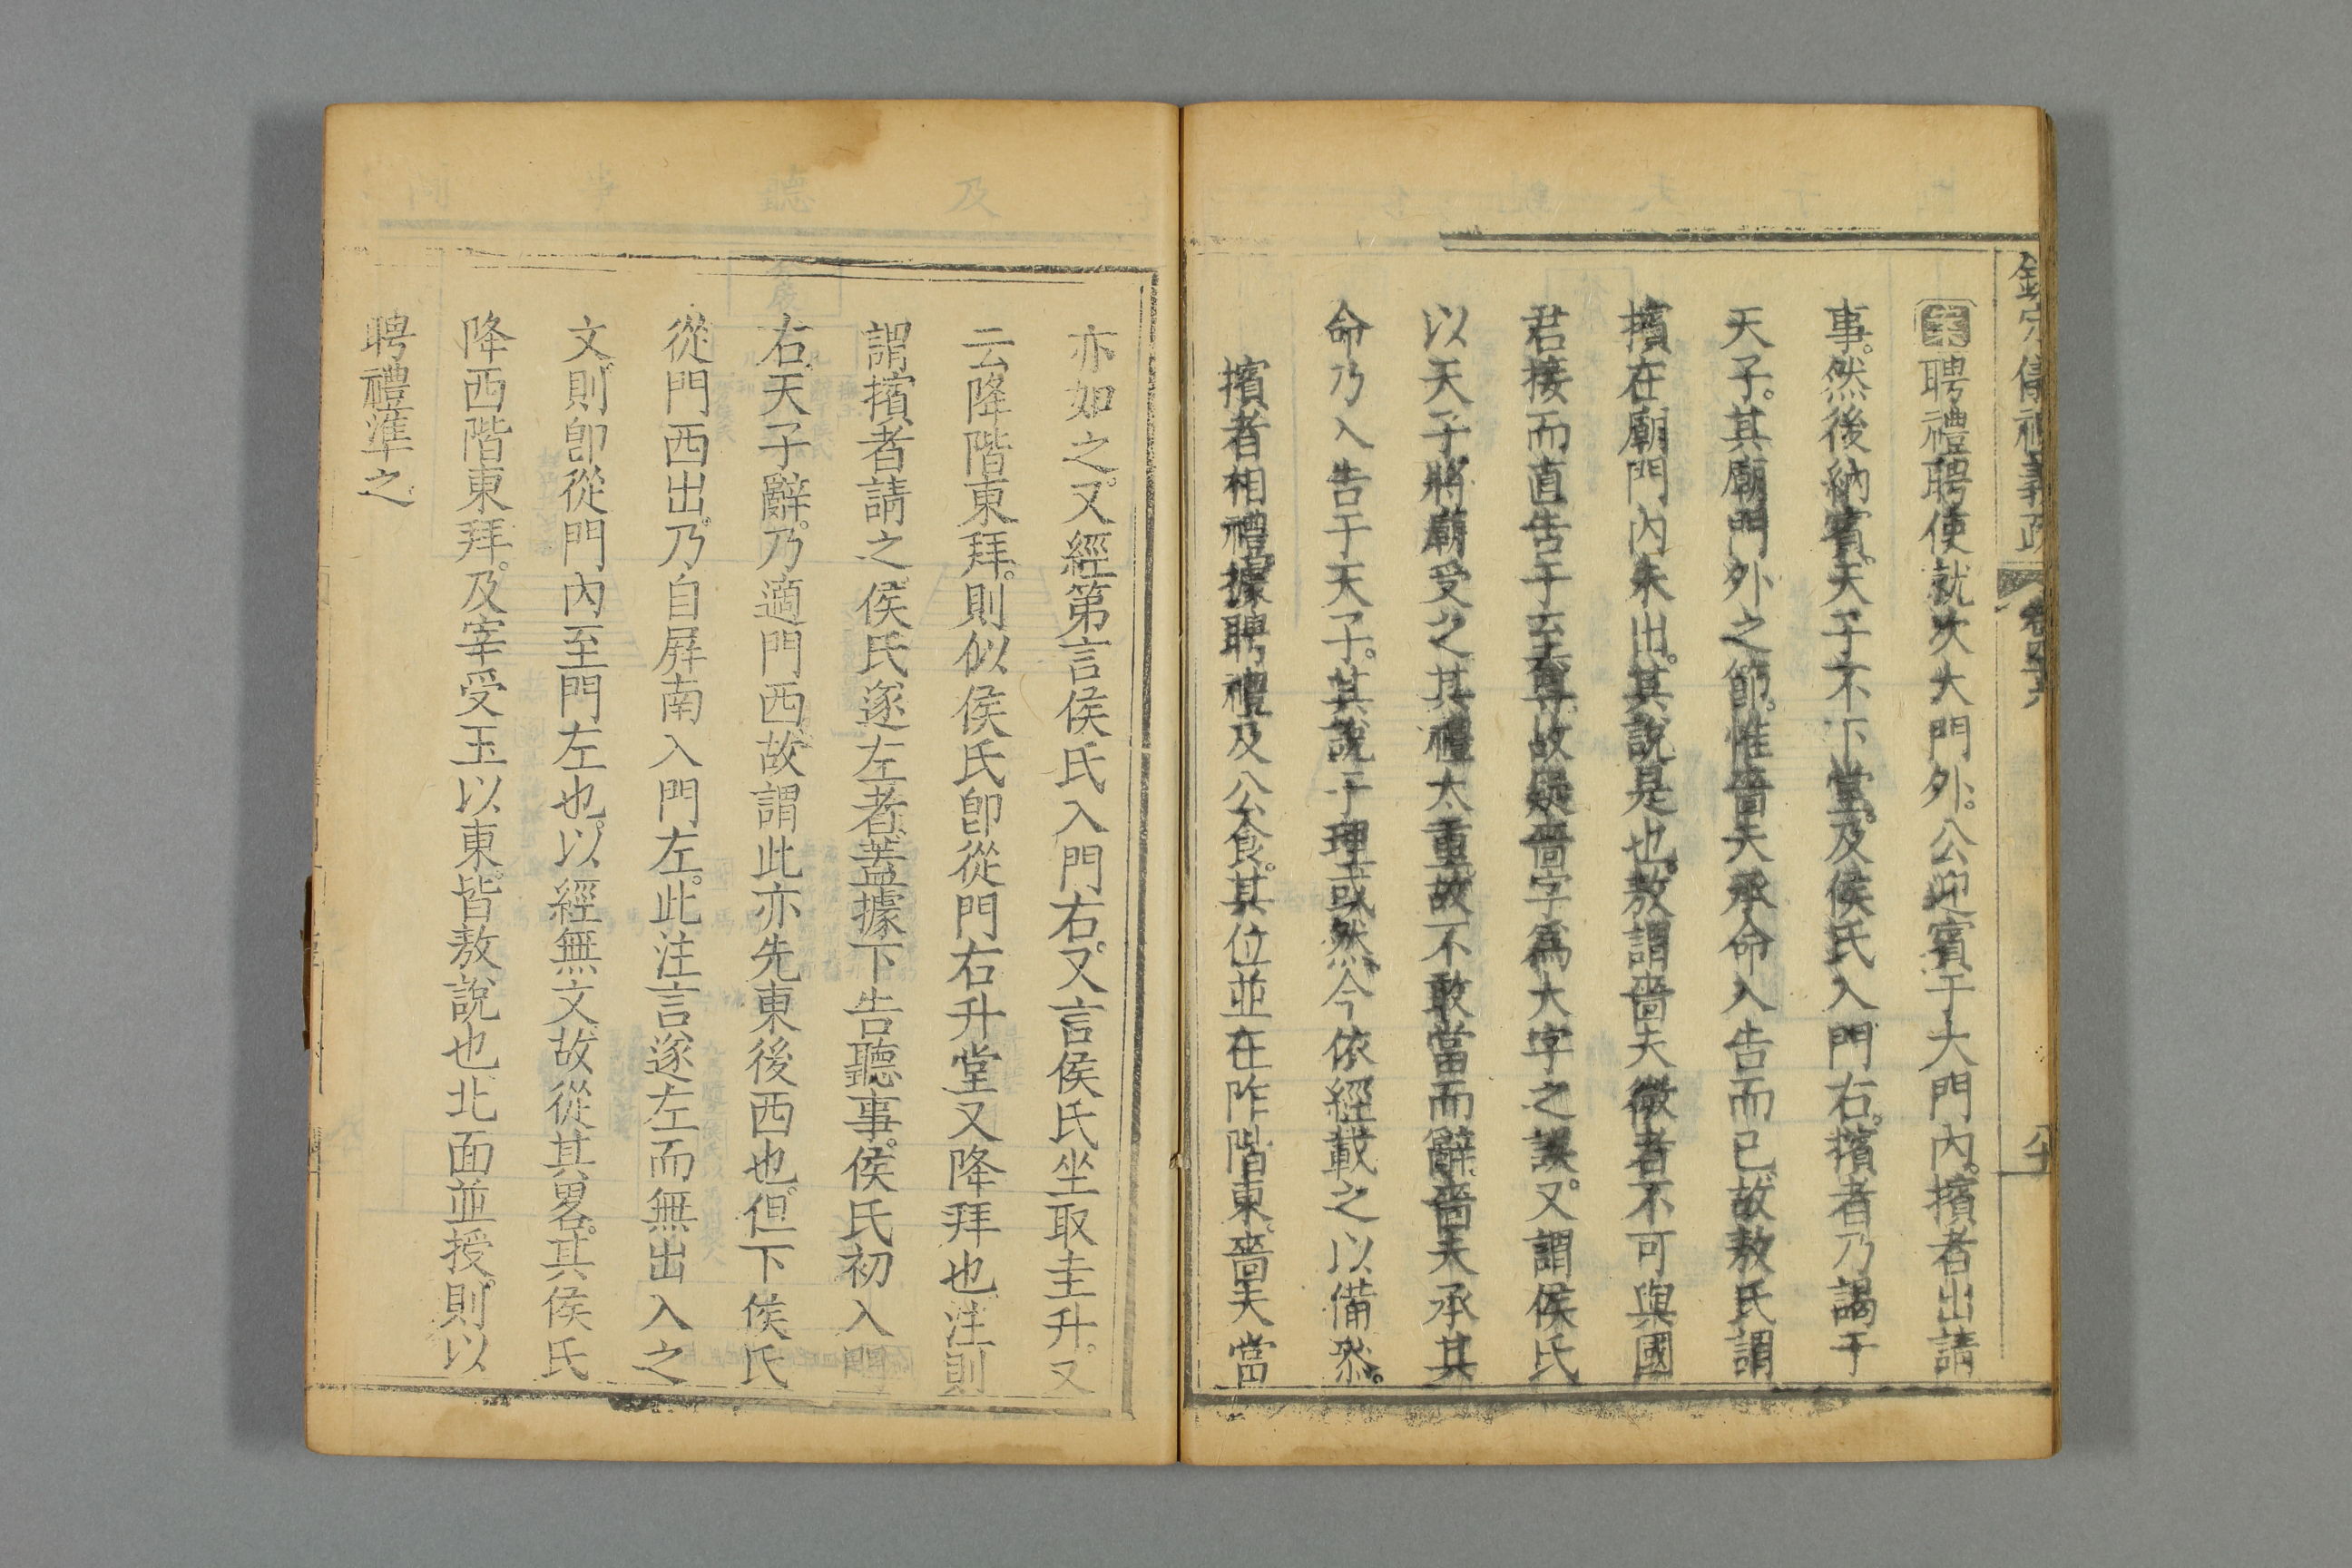 欽定儀禮義疏 卷四十六
案聘禮聘使就次大門外。公迎賓于大門內。擯者出請
事。然後納賓。天子不下堂。及侯氏入門右。擯者乃謁于
天子。其廟門外之節。惟嗇夫承命入告而已。故敖氏謂
擯在廟門內未出。其說是也。敖謂嗇夫微者不可與國
君接而直告于至尊。故疑嗇字爲大字之誤。又謂侯氏
以天子將廟受之其禮太重。故不敢當而辭嗇夫承其
命乃入告于天子。其說于理或然。今依經載之以備叅。
擯者相禮據聘禮及公食。其位並在阼階東。嗇夫當
亦如之。又經第言侯氏入門右。又言侯氏坐取圭升。又
云降階東拜。則似侯氏卽從門右升堂又降拜也注則
謂擯者請之侯氏遂左者蓋據下告聽事。侯氏初入門
右天子辭。乃適門西故謂此亦先東後西也。但下侯氏
從門西出。乃自屏南入門左。此注言遂左而無出入之
文。則卽從門內至門左也。以經無文故從其畧。其侯氏
降西階東拜。及宰受玉以東。皆敖說也北面並授。則以
聘禮準之